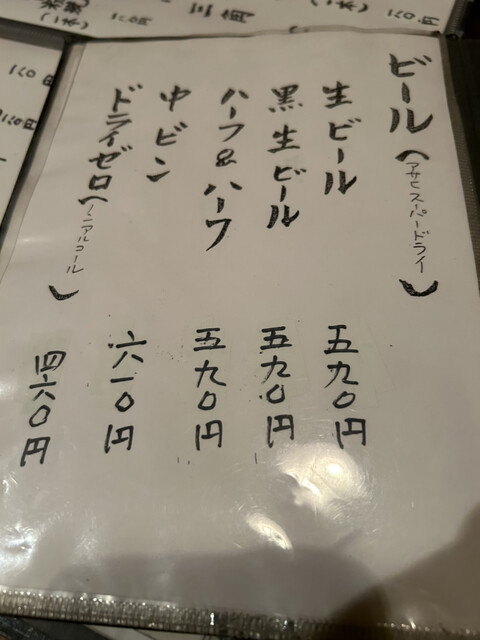 ビール（アサヒスーパードライ）
生ビール 五九〇円
黒生ビール 五九〇円
ハーフ&ハーフ 五九〇円
中ビン 六一〇円
ドライゼロ（ノンアルコール） 四六〇円